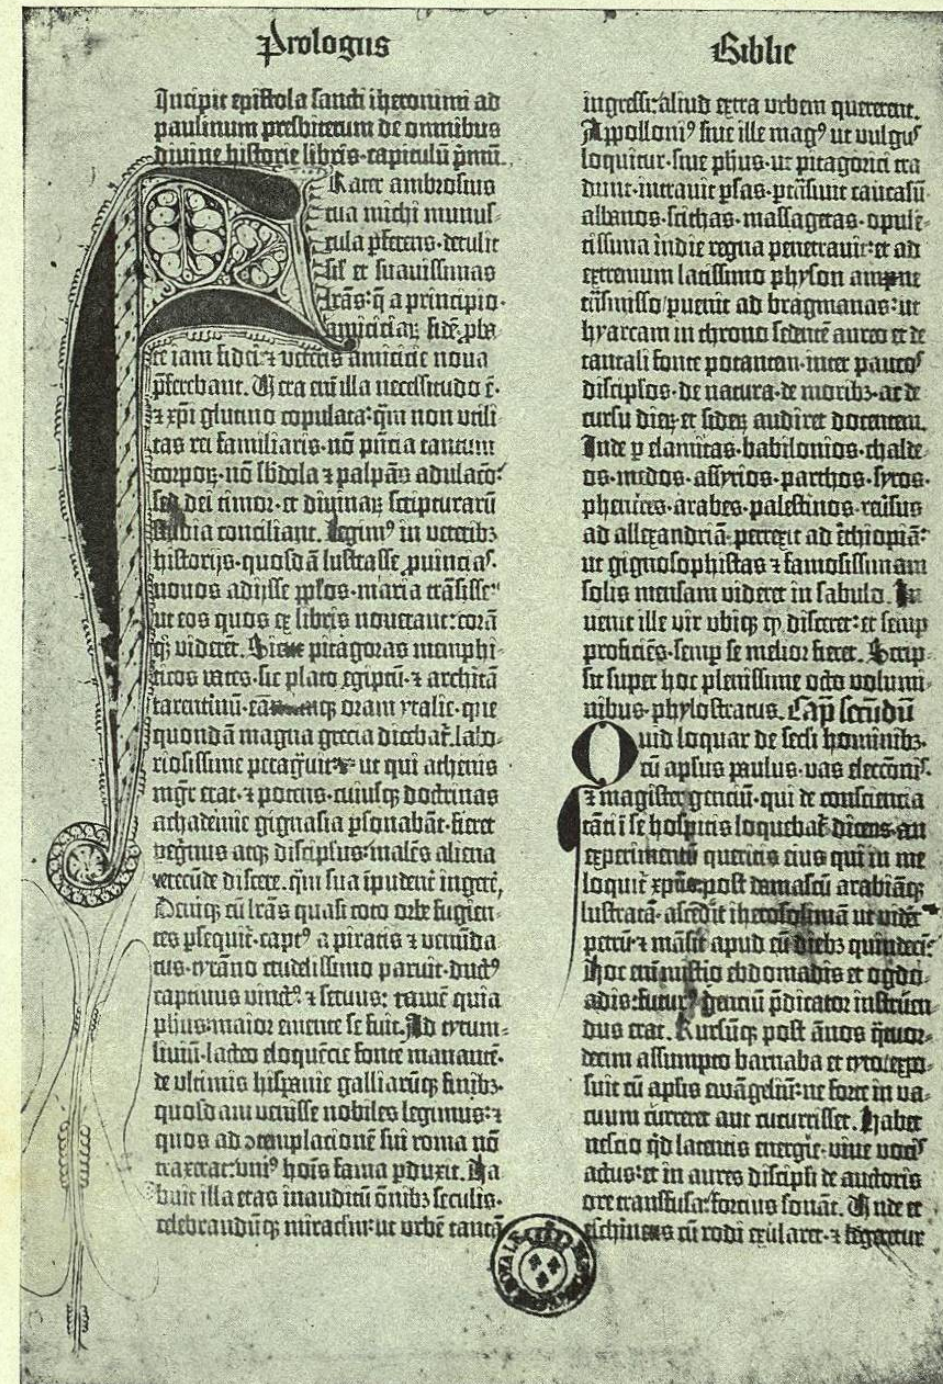 Prologus
Biblie
Incipit epistola sancti iheronimi ad
paulinum presbiterum de omnibus
divine historie libris·capitulū p̄mū.
Frater ambrosius
tua michi munus-
cula ꝑferens·detulit
sil̄ et suavissimas
lr̄as:q̄ a principio·
amiciciaꝝ fidē ꝓba
te iam fidei ⁊ veteris amicicie nova
p̄ferebant. Vera em̄ illa necessitudo ē·
⁊ xp̄i glutino copulata:q̄m non utili
tas rei familiaris·nō pn̄cia tantum
corpoꝝ·nō sb̄dola ⁊ palpās adulacō:
sed dei timor·et divinaꝝ scripturarū
studia conciliant. Legimꝰ in veteribꝫ
historijs·quosdā lustrasse ꝓuincias·
novos adijsse ppl̄os·maria trāsisse:
ut eos quos ex libris noverant:corā
qꝫ viderēt. Sicut pitagoras memphi-
ticos vates·sic plato egiptū·⁊ architā
tarentinū·eādemqꝫ oram ytalie·que
quondā magna grecia dicebat̄·labo-
riosissime peragravit:ut qui athenis
mgr̄ erat·⁊ potens·cuiusqꝫ doctrinas
achademie gignasia ꝑsonabāt·fieret
peḡrinus atqꝫ discipl̄us:malēs aliena
verecūde discere·q̄m sua īpudent̄ ingere,
Deniqꝫ cū lr̄as quasi toto orbe fugien-
tes ꝑsequit̄·captꝰ a piratis ⁊ venūda
tus·tyrāno crudelissimo paruit·ductꝰ
captivus vinctꝰ ⁊ servus: tamē quia
ph̄us:maior emente se fuit. Ad tytum-
livium·lacteo eloquēcie fonte manantē·
de vltimis hispanie galliarūqꝫ finibꝫ·
quosdam venisse nobiles legimus:⁊
quos ad ↄtemplacionē sui roma nō
traxerat:vniꝰ hoīs fama ꝑduxit. Ha
buit illa etas inauditū ōnibꝫ seculis·
celebrandūqꝫ miraclm̄:ut vrbē tantā
ingressi:aliud extra vrbem quererent.
Appolloniꝰ siue ille magꝰ ut vulgus
loquitur·siue ph̄us·ut pitagorici tra
dunt·intravit ꝑsas·ptrāsivit caucasū
albanos·scithas·massagetas·opulē-
tissima indie regna penetravit:et ad
extremum latissimo physon amne
trāsmisso ꝑuenit ad bragmanas:ut
hyarcam in throno sedentē aureo et de
tantali fonte potantem·inter paucos
discipl̄os·de natura·de moribꝫ·ac de
cursu dieꝝ et sideꝝ audiret docentem.
Inde ꝑ elamitas·babilonios·chalde-
os·medos·assyrios·parthos·syros·
phenices·arabes·palestinos·reūsus
ad allexandriā·perrexit ad ethiopiā:
ut gignosophistas ⁊ famosissimam
solis mensam videret in sabulo. In
venit ille vir vbiqꝫ qᵈ disceret:et semp
proficiēs·semp se melior fieret. Scrip-
sit super hoc plenissime octo volumi-
nibus·phylostratus. Cap̄ secūdū
Quid loquar de secli hominibꝫ·
cū apl̄us paulus·vas elecc̄onis·
⁊ magister genciū·qui de consciencia
tāti ī se hospitis loquebat̄ dicens·an
experimentū queritis eius qui in me
loquit̄ xpūs:post damascū arabiāqꝫ
lustratā·ascēdit iherosolimā ut videt
petrū·⁊ māsit apud eū diebꝫ quindecī:
Hoc em̄ mistio ebdomadis et ogdo-
adis:futurꝰ genciū p̄dicator instruen
dus erat. Rursūqꝫ post ānos q̄tuor-
decim assumpto barnaba et tyto:expo-
suit cū apl̄is ewāgeliū:ne forte in va-
cuum curreret aut cucurrisset. Habet
nescio qᵈ latentis energie·vive vocis
actus:et in aures discipli de auctoris
ore transfusa:forcius sonāt. Vnde et
eschines cū rodi exularet·⁊ legeretur